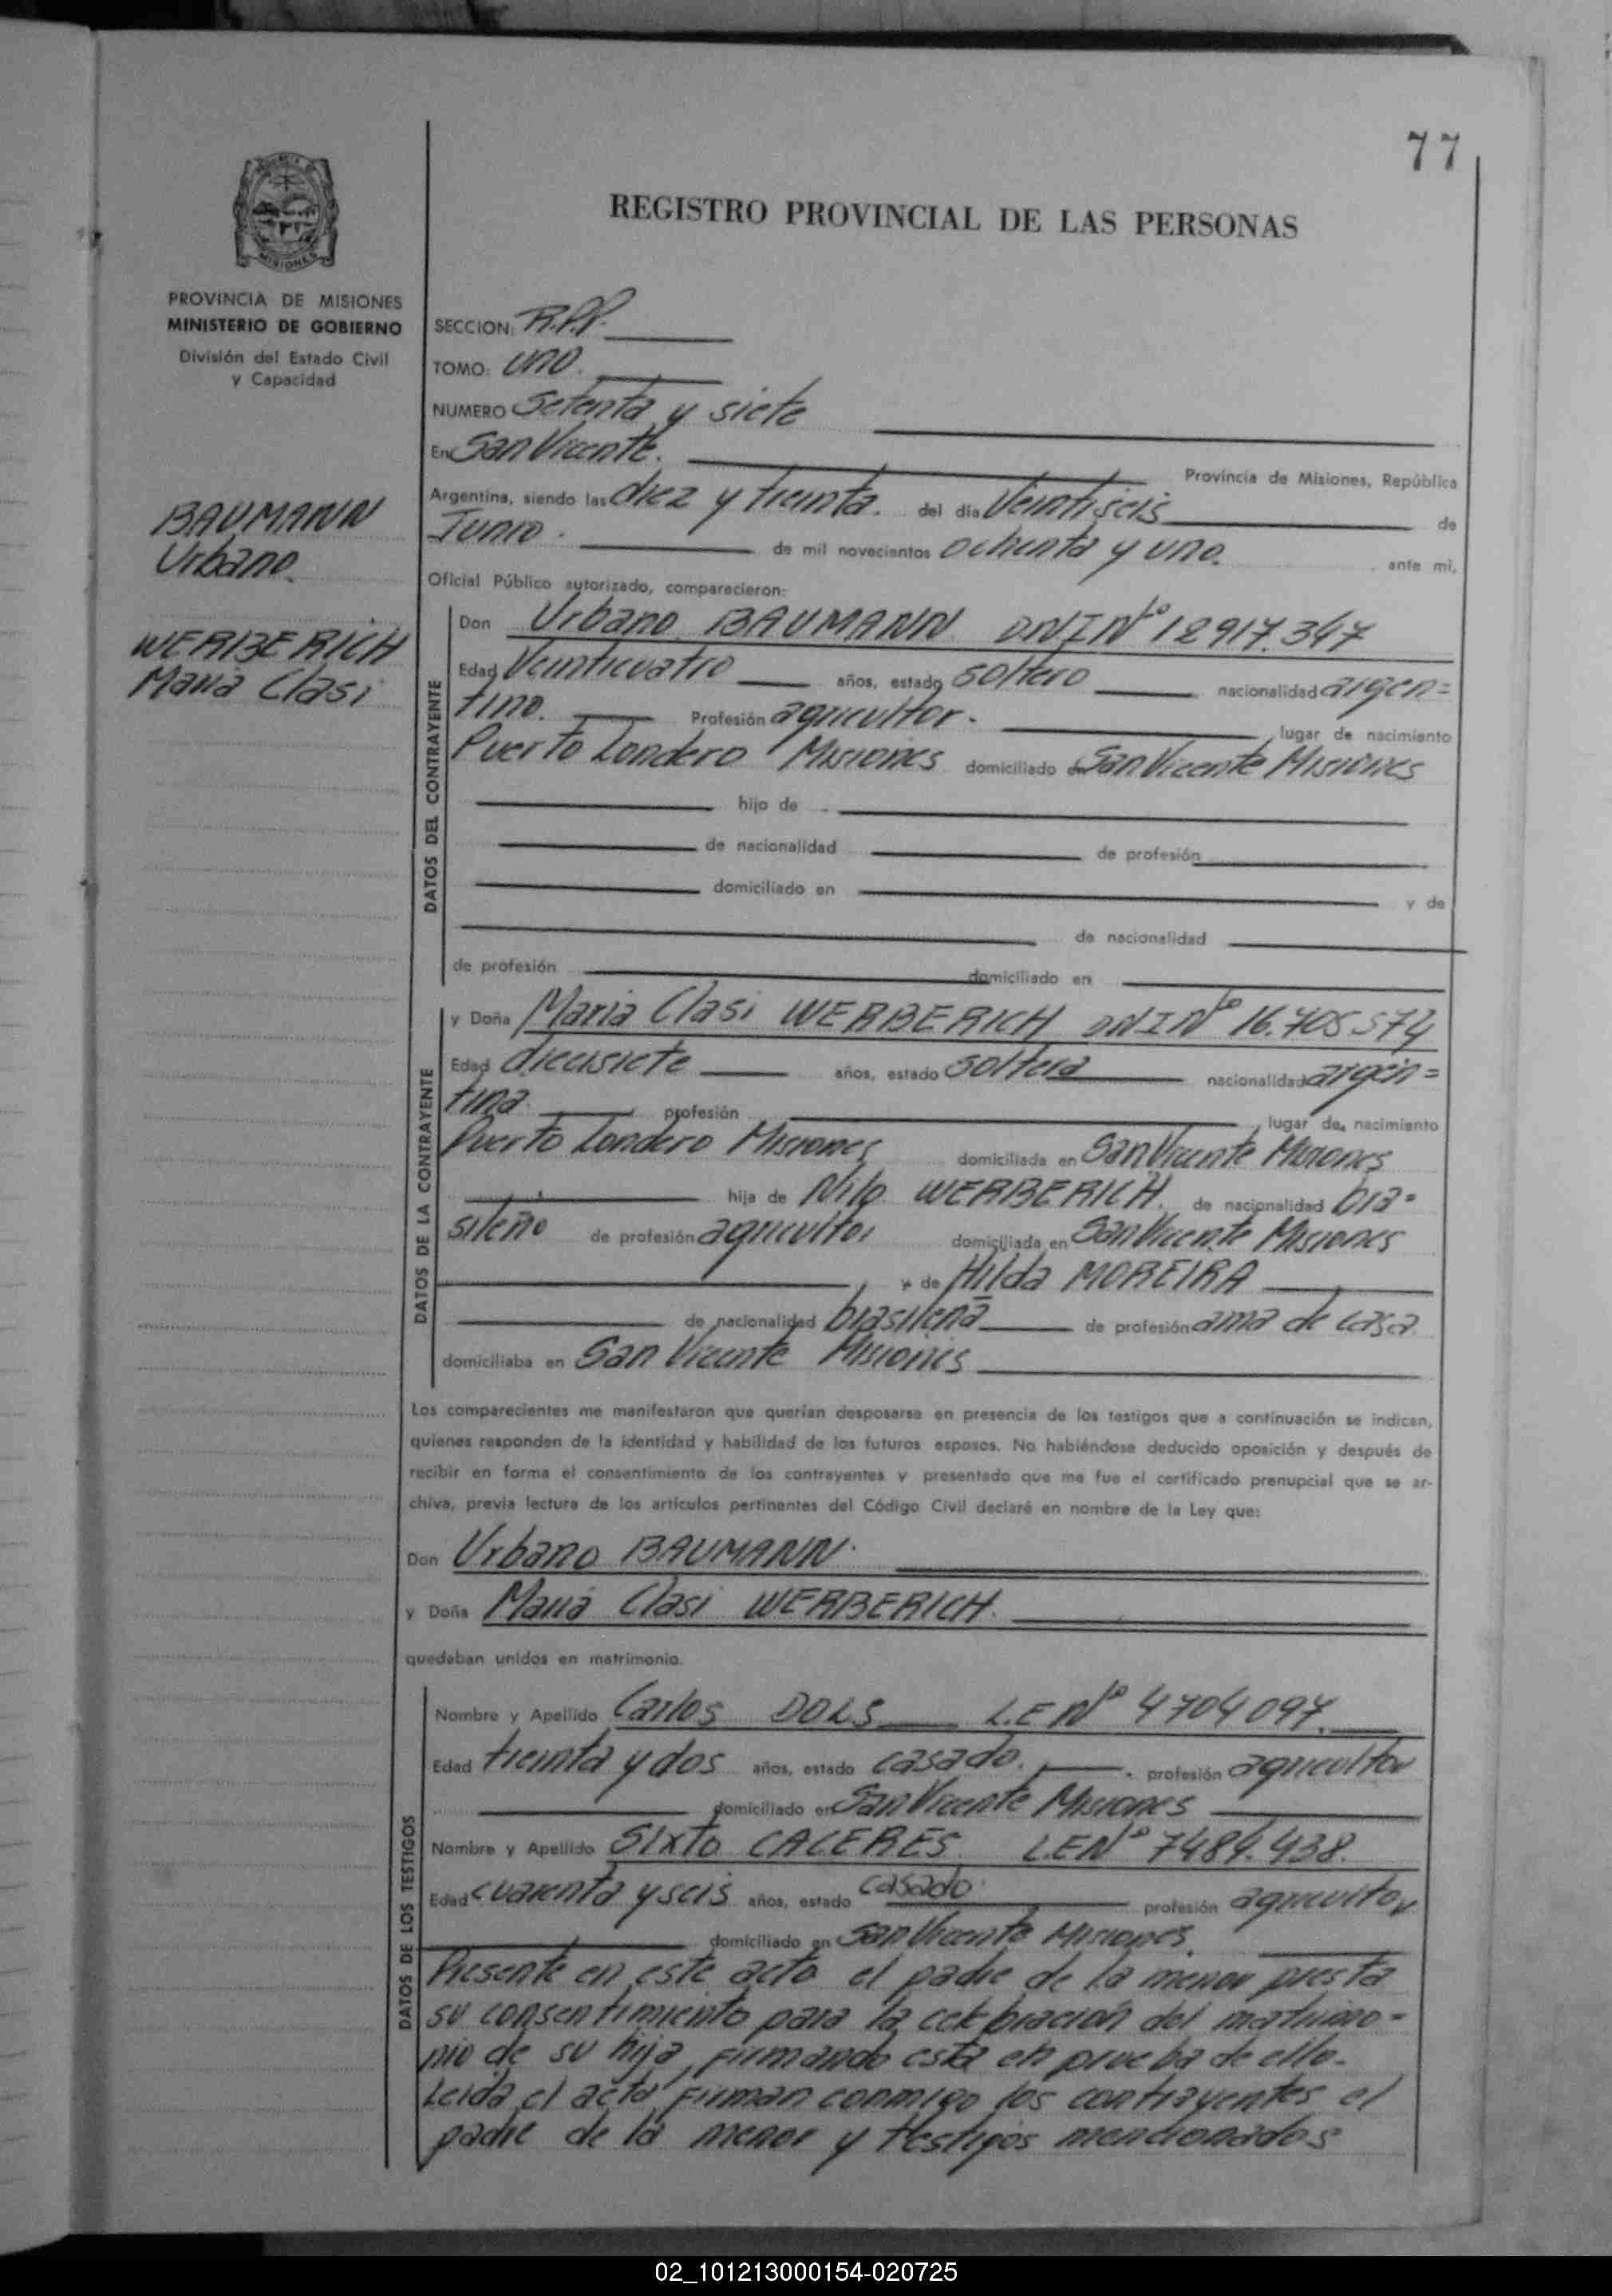 77
REGISTRO PROVINCIAL DE LAS PERSONAS
MISIONES
PROVINCIA DE MISIONES
MINISTERIO DE GOBIERNO
División del Estado Civil
y Capacidad
BAUMANN
Urbano.
WERBERICH
Maria Clasi
SECCION: R.P.P.
TOMO: uno.
NUMERO Setenta y siete
En San Vicente. Provincia de Misiones, República
Argentina, siendo las diez y treinta. del día Veintiseis de
Junio. de mil novecientos ochenta y uno. ante mí,
Oficial Público autorizado, comparecieron:
DATOS DEL CONTRAYENTE
Don Urbano BAUMANN DNI Nº 12917.347
Edad Veinticuatro años, estado soltero nacionalidad argen=
tino. Profesión agricultor. lugar de nacimiento
Puerto Londero Misiones domiciliado en San Vicente Misiones
hijo de
de nacionalidad de profesión
domiciliado en y de
de nacionalidad
de profesión domiciliado en
DATOS DE LA CONTRAYENTE
y Doña Maria Clasi WERBERICH DNI Nº 16.705574
Edad diecisiete años, estado soltera nacionalidad argen=
tina. profesión lugar de nacimiento
Puerto Londero Misiones domiciliada en San Vicente Misiones
hija de Nilo WERBERICH. de nacionalidad bra=
sileño de profesión agricultor domiciliada en San Vicente Misiones
y de Hilda MOREIRA
de nacionalidad brasileña de profesión ama de casa
domiciliaba en San Vicente Misiones
Los comparecientes me manifestaron que querían desposarse en presencia de los testigos que a continuación se indican,
quienes responden de la identidad y habilidad de los futuros esposos. No habiéndose deducido oposición y después de
recibir en forma el consentimiento de los contrayentes y presentado que me fue el certificado prenupcial que se ar-
chiva, previa lectura de los artículos pertinentes del Código Civil declaré en nombre de la Ley que:
Don Urbano BAUMANN.
y Doña Maria Clasi WERBERICH.
quedaban unidos en matrimonio.
DATOS DE LOS TESTIGOS
Nombre y Apellido Carlos DOLS L.E Nº 4704097.
Edad treinta y dos años, estado casado. profesión agricultor
domiciliado en San Vicente Misiones
Nombre y Apellido Sixto CACERES L.E Nº 7484.438.
Edad cuarenta y seis años, estado casado. profesión agricultor
domiciliado en San Vicente Misiones.
Presente en este acto el padre de la menor presta
su consentimiento para la celebración del matrimo-
nio de su hija, firmando esta en prueba de ello.
Leida el acta firman conmigo los contrayentes el
padre de la menor y testigos mencionados
02_101213000154-020725